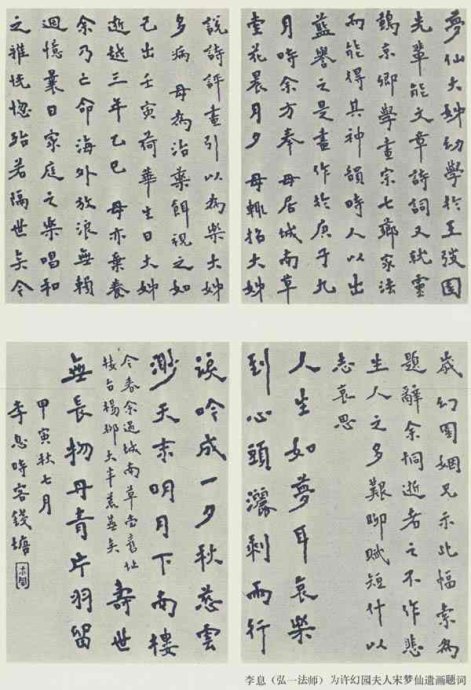 夢仙大姊幼學於王弢園
先輩能文章詩詞又就靈
鶼京卿學畫宗七薌家法
而能得其神韻時人以出
藍譽之是畫作於庚子九
月時余方奉母居城南草
堂花晨月夕母輒招大姊
說詩評畫引以為樂大姊
多病母為治藥餌視之如
己出壬寅荷華生日大姊
逝越三年乙巳母亦棄養
余乃亡命海外放浪無賴
迴憶曩日家庭之樂唱和
之雅恍惚殆若隔世矣今
歲幻園姻兄示此幅索為
題辭余恫逝者之不作悲
生人之多艱聊賦短什以
志哀思
人生如夢耳哀樂
到心頭灑剩兩行
淚吟成一夕秋慈雲
渺天末明月下南樓
今春余過城南草堂舊址
樓台楊柳大半荒蕪矣
壽世
無長物丹青片羽留
甲寅秋七月
李息時客錢塘
李息（弘一法师）为许幻园夫人宋梦仙遗画题词